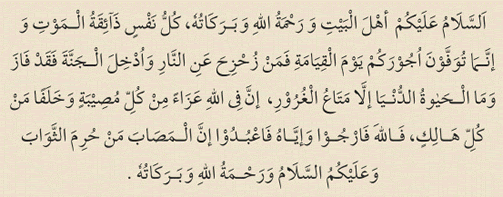 اَلسَّلَامُ عَلَيْكُمْ أَهْلَ الْبَيْتِ وَ رَحْمَةُ اللهِ وَبَـرَكَاتُهُ، كُلُّ نَفْسٍ ذَآئِقَةُ الْـمَوْتِ وَ
إِنَّـمَا تُوَفَّوْنَ اُجُوْرَكُمْ يَوْمَ الْقِيَامَةِ فَمَنْ زُحْزِحَ عَنِ النَّارِ وَاُدْخِلَ الْـجَنَّةَ فَقَدْ فَازَ
وَمَا الْـحَيٰوةُ الدُّنْـيَا إِلَّا مَتَاعُ الْغُرُوْرِ، إِنَّ فِى اللهِ عَزَاءً مِنْ كُلِّ مُصِيْبَةٍ وَ خَلَفًا مَنْ
كُلِّ هَـالِكٍ، فَـاللهَ فَارْجُـوْا وَإِيَّـاهُ فَاعْبُدُوْا إِنَّ الْـمَصَابَ مَنْ حُرِمَ الثَّوَابَ
وَعَلَيْكُمُ السَّلَامُ وَرَحْـمَةُ اللهِ وَبَـرَكَاتُهُ .